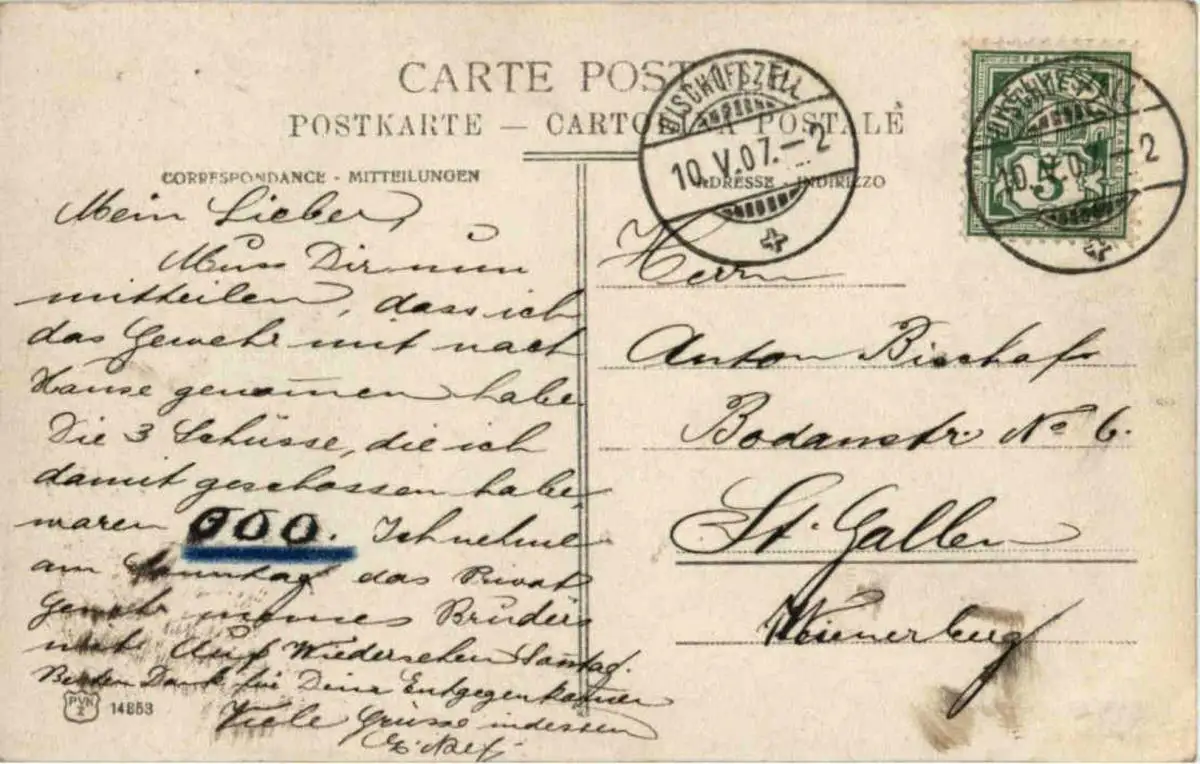 CARTE POST
POSTKARTE — CARTO A POSTALE
CORRESPONDANCE - MITTEILUNGEN
ADRESSE - INDIRIZZO
BISCHOFSZELL
10.V.07.-2
BISCHOFSZELL
10.V.07.-2
5
Mein Lieber,
Muss Dir nun
mitteilen, dass ich
das Gewehr mit nach
Hause genommen habe.
Die 3 Schüsse, die ich
damit geschossen habe,
waren 000. Ich nehme
am Sonntag das Privat
gewehr meines Bruders
mit. Auf Wiedersehen Sonntag.
Besten Dank für Deine Entgegenkommen
Viele Grüsse indessen
E. Naef.
Herrn
Anton Bischof
Bodanstr. No 6.
St. Gallen
Wienerberg
PVK
Z
14853